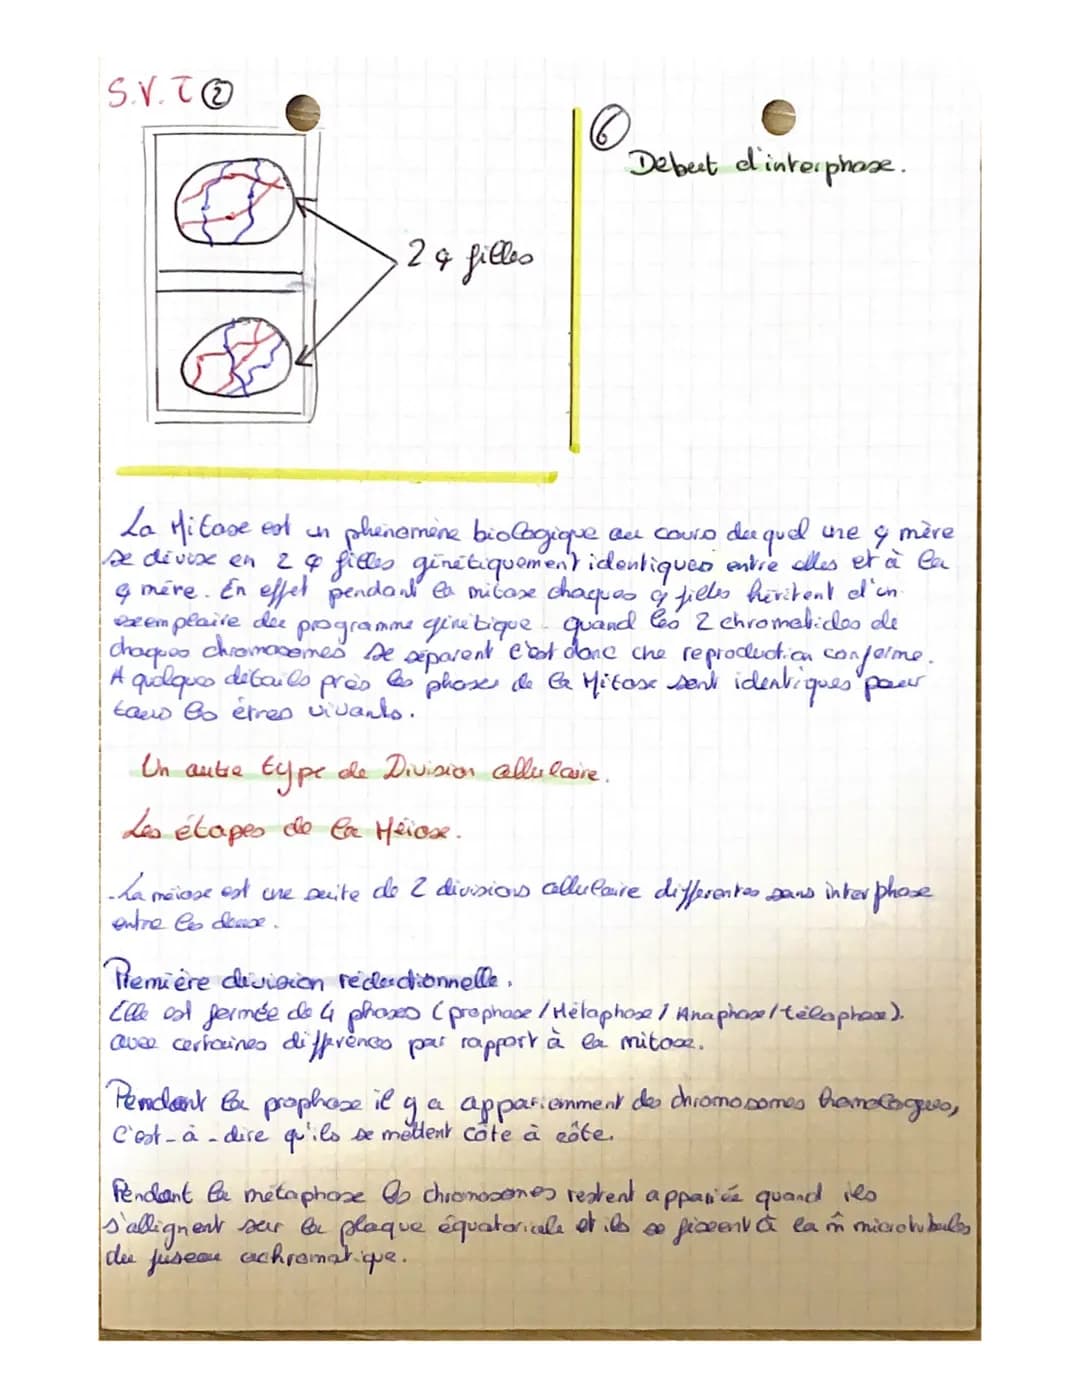 S.V.T ②
⑥
Debut d'interphase.
2 φ filles
La Mitose est un phénomène biologique au cours duquel une φ mère
se divise en 2 φ filles génétiquement identiques entre elles et à la
φ mère. En effet pendant la mitose chaques φ filles héritent d'un
exemplaire du programme génétique. quand les 2 chromatides de
chaques chromosomes se séparent c'est donc une reproduction conforme.
A quelques détails près les phases de la Mitose sont identiques pour
tous les êtres vivants.
Un autre type de Division cellulaire.
Les étapes de la Méiose.
-La méiose est une suite de 2 divisions cellulaire differentes sans interphase
entre les deux.
Première division réductionnelle.
Elle est formée de 4 phases (prophase / Métaphase / Anaphase / télophase).
avec certaines différences par rapport à la mitose.
Pendant la prophase il y a appariemment des chromosomes homologues,
C'est-à-dire qu'ils se mettent côte à côte.
Pendant la métaphase les chromosomes restent appariés quand ils
s'allignent sur la plaque équatoriale et ils se fixent à la m̂ microtubules
du fuseau achromatique.